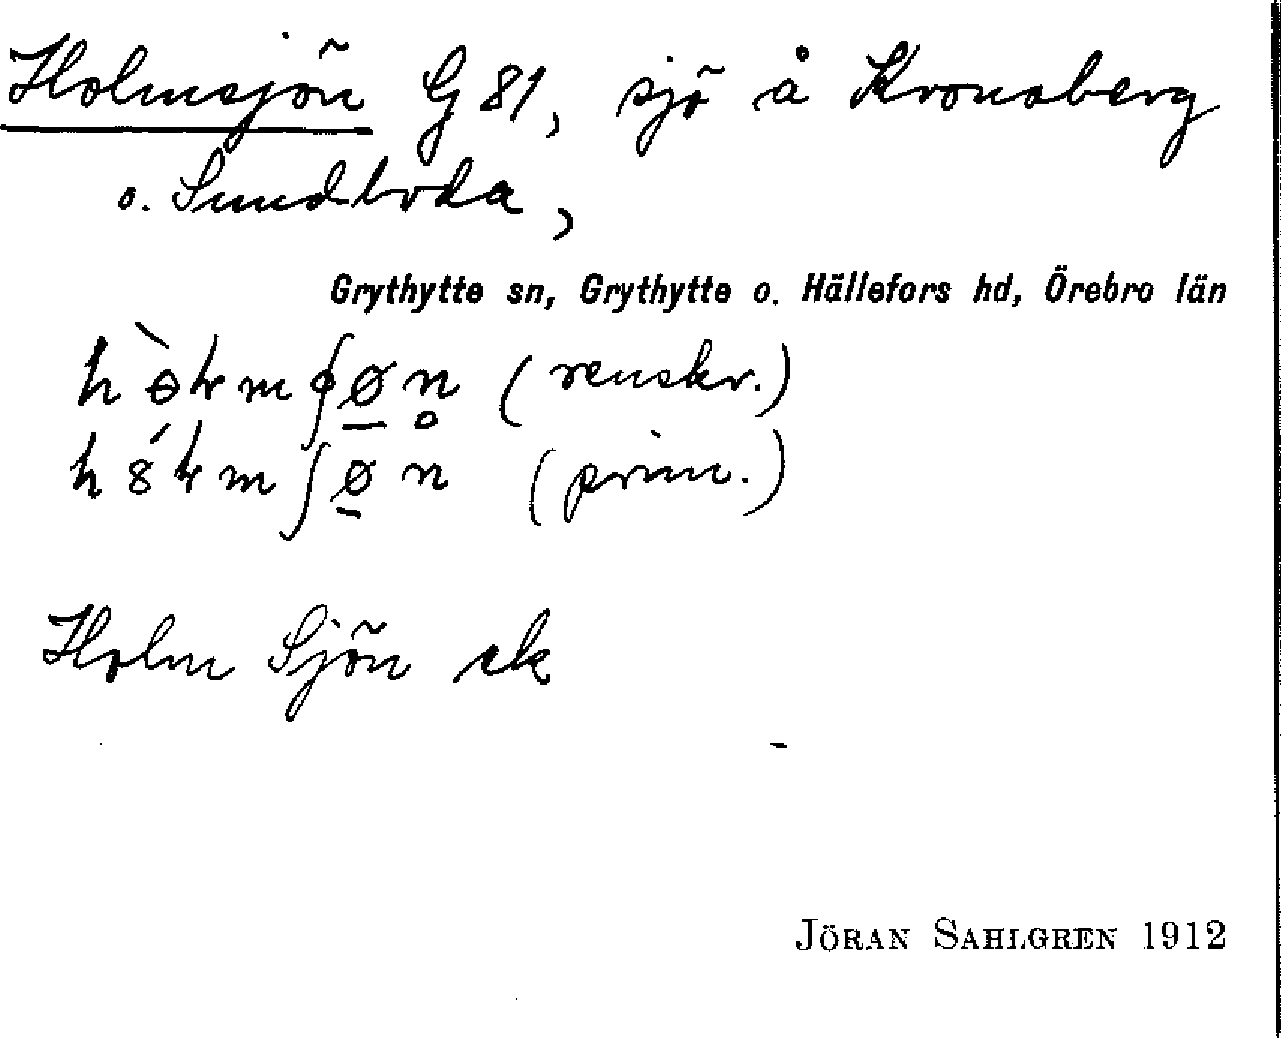 Holmsjön G 81, sjö å Kronoberg
o. Sundboda,
Grythytte sn, Grythytte o. Hällefors hd, Örebro län
(renskr.)
(prim.)
Holm Sjön ek
JÖRAN SAHLGREN 1912